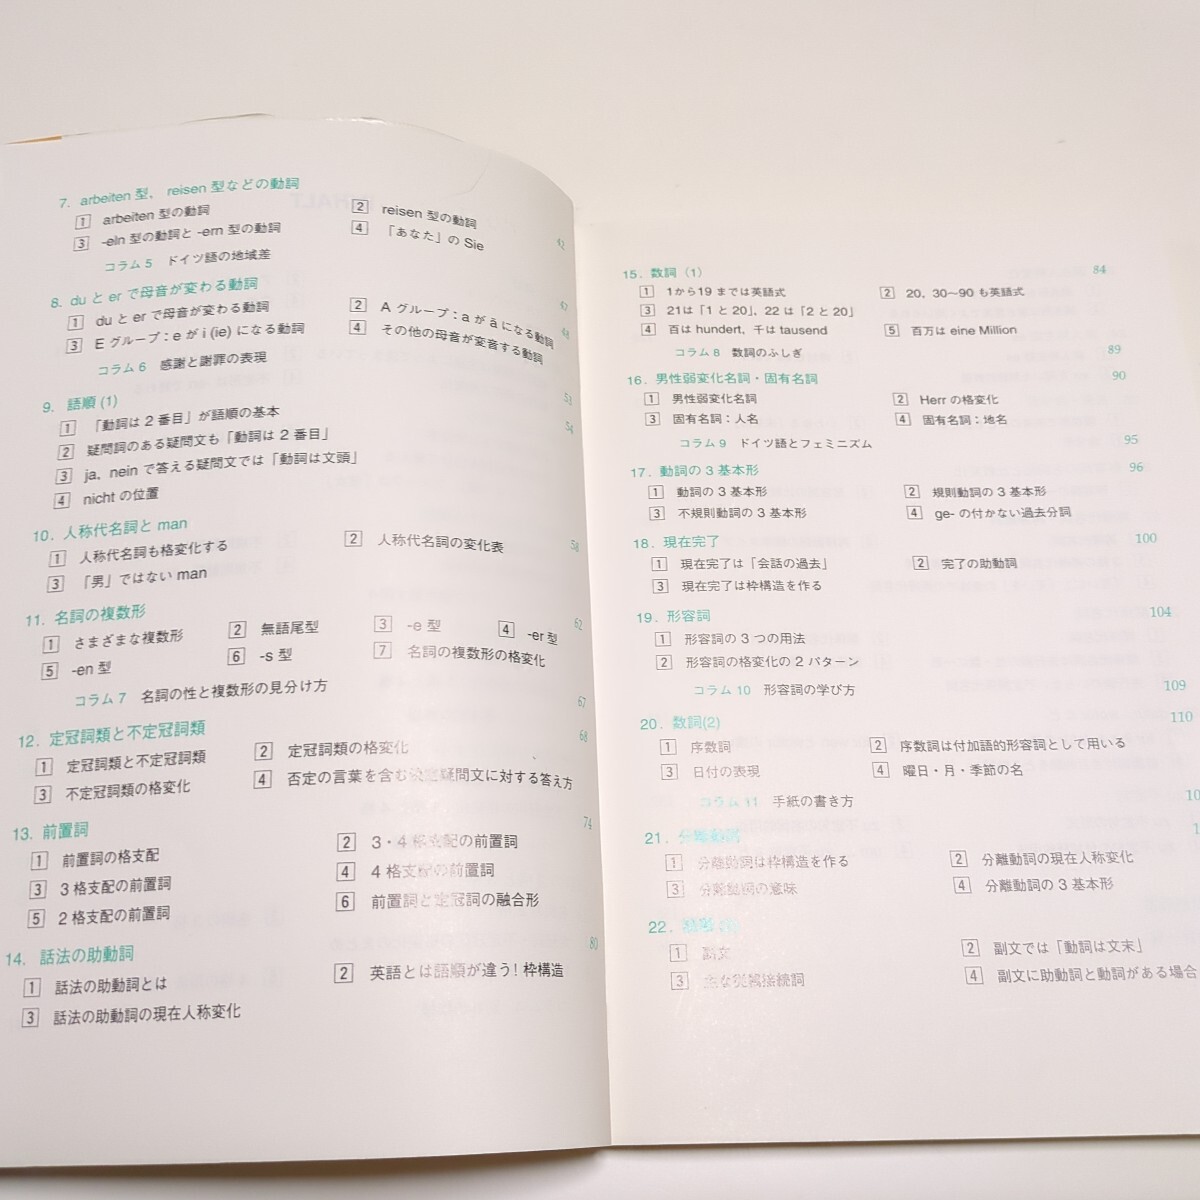 7. arbeiten 型、 reisen 型などの動詞
1 arbeiten 型の動詞 2 reisen 型の動詞
3 -eln 型の動詞と -ern 型の動詞 4 「あなた」の Sie
コラム 5 ドイツ語の地域差 42
8. du と er で母音が変わる動詞 47
1 du と er で母音が変わる動詞 2 A グループ：a が ä になる動詞 48
3 E グループ：e が i (ie) になる動詞 4 その他の母音が変音する動詞
コラム 6 感謝と謝罪の表現 53
9. 語順 (1) 54
1 「動詞は 2 番目」が語順の基本
2 疑問詞のある疑問文も「動詞は 2 番目」
3 ja、nein で答える疑問文では「動詞は文頭」
4 nicht の位置
10. 人称代名詞と man 58
1 人称代名詞も格変化する 2 人称代名詞の変化表
3 「男」ではない man
11. 名詞の複数形 62
1 さまざまな複数形 2 無語尾型 3 -e 型 4 -er 型
5 -en 型 6 -s 型 7 名詞の複数形の格変化
コラム 7 名詞の性と複数形の見分け方 67
12. 定冠詞類と不定冠詞類 68
1 定冠詞類と不定冠詞類 2 定冠詞類の格変化
3 不定冠詞類の格変化 4 否定の言葉を含む決定疑問文に対する答え方
13. 前置詞 74
1 前置詞の格支配 2 3・4 格支配の前置詞
3 3 格支配の前置詞 4 4 格支配の前置詞
5 2 格支配の前置詞 6 前置詞と定冠詞の融合形
14. 話法の助動詞 80
1 話法の助動詞とは 2 英語とは語順が違う！枠構造
3 話法の助動詞の現在人称変化
15. 数詞 (1) 84
1 1から19 までは英語式 2 20, 30〜90 も英語式
3 21は「1 と 20」, 22 は「2 と 20」
4 百は hundert, 千は tausend 5 百万は eine Million
コラム 8 数詞のふしぎ 89
16. 男性弱変化名詞・固有名詞 90
1 男性弱変化名詞 2 Herr の格変化
3 固有名詞：人名 4 固有名詞：地名
コラム 9 ドイツ語とフェミニズム 95
17. 動詞の 3 基本形 96
1 動詞の 3 基本形 2 規則動詞の 3 基本形
3 不規則動詞の 3 基本形 4 ge- の付かない過去分詞
18. 現在完了 100
1 現在完了は「会話の過去」 2 完了の助動詞
3 現在完了は枠構造を作る
19. 形容詞 104
1 形容詞の 3 つの用法
2 形容詞の格変化の 2 パターン
コラム 10 形容詞の学び方 109
20. 数詞(2) 110
1 序数詞 2 序数詞は付加語的形容詞として用いる
3 日付の表現 4 曜日・月・季節の名
コラム 11 手紙の書き方
21. 分離動詞
1 分離動詞は枠構造を作る 2 分離動詞の現在人称変化
3 分離動詞の意味 4 分離動詞の 3 基本形
22.
1 副文 2 副文では「動詞は文末」
3 主な従属接続詞 4 副文に助動詞と動詞がある場合